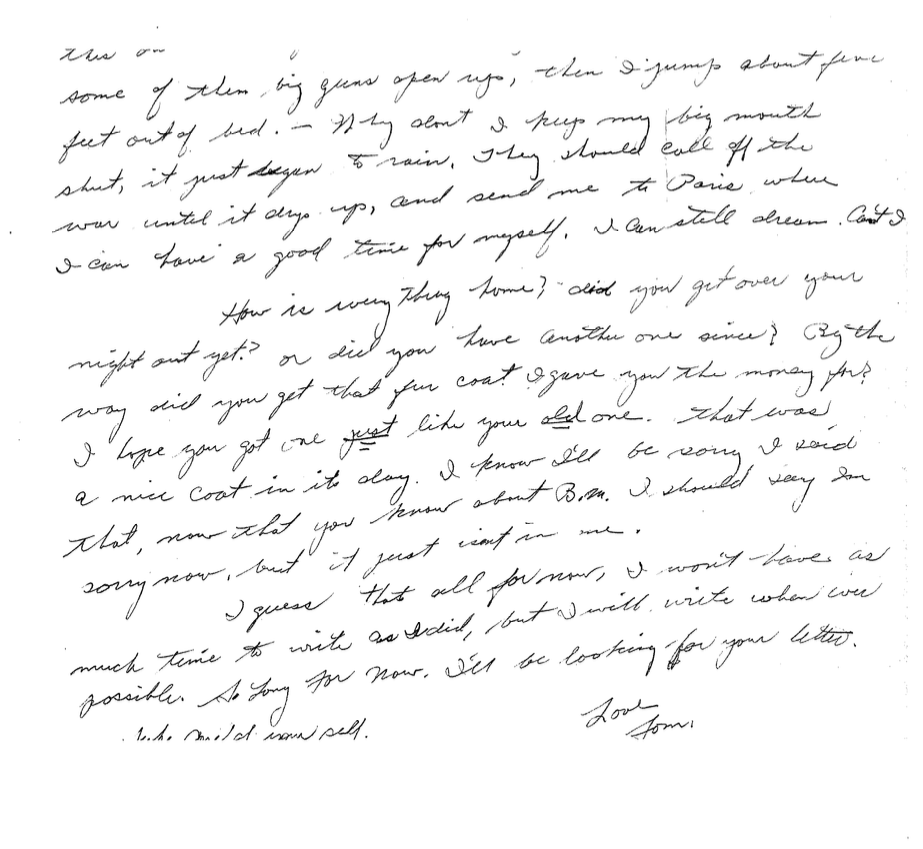 this on
some of them big guns open up, then I jump about five
feet out of bed. — Why dont I keep my big mouth
shut, it just began to rain. They should call off the
war until it drys up, and send me to Paris where
I can have a good time for myself. I can still dream. Cant I
How is everything home? did you get over your
night out yet? or did you have another one since? By the
way did you get that fur coat I gave you the money for?
I hope you got one just like your old one. That was
a nice coat in its day. I know I'll be sorry I said
that, now that you know about B.M. I should say Im
sorry now, but it just isnt in me.
I guess that all for now, I won't have as
much time to write as I did, but I will write when ever
possible. So Long For Now. I'll be looking for your letter.
Love
Tom.
your self.